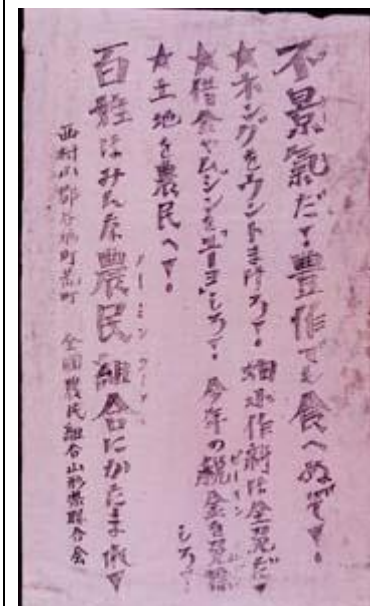 不景氣だ!豊作でも食へぬぞ!
★ネングをウントまけろ! 畑小作料は全免だ!
★借金やムジンをユーヨしろ! 今年の税金を免除
しろ!
★土地を農民へ!
百姓はみんな農民組合にかたまれ!
西村山郡谷地町荒町 全国農民組合山形県聯合会